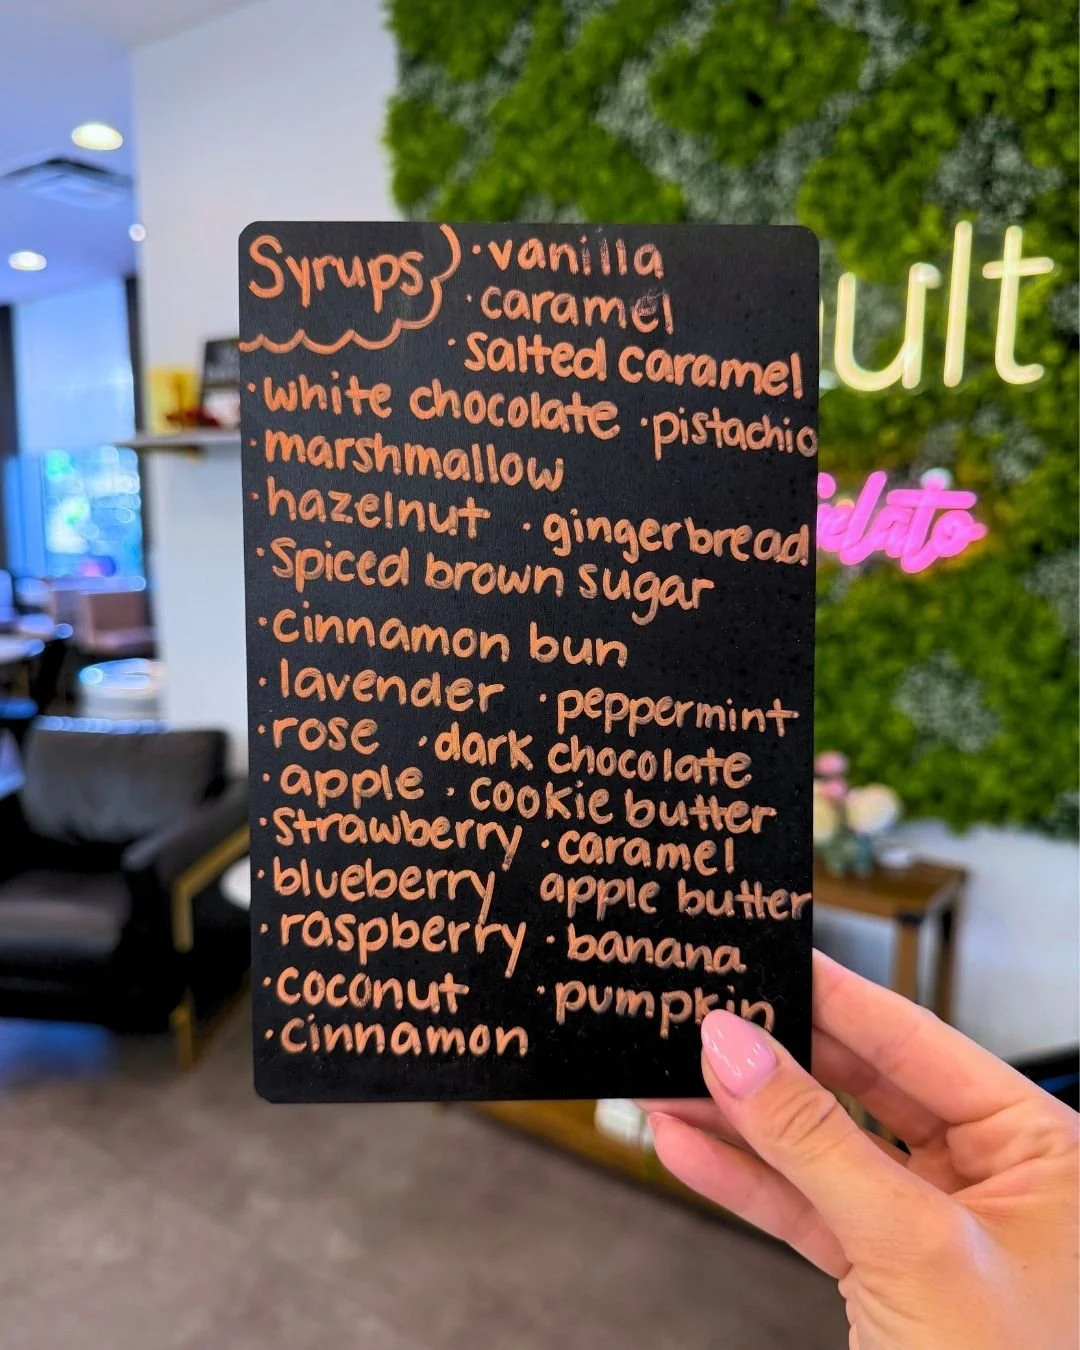 Syrups
·vanilla
·caramel
·salted caramel
·white chocolate ·pistachio
·marshmallow
·hazelnut ·gingerbread
·Spiced brown sugar
·cinnamon bun
·lavender ·peppermint
·rose ·dark chocolate
·apple ·cookie butter
·strawberry ·caramel
·blueberry apple butter
·raspberry ·banana
·coconut ·pumpkin
·cinnamon
ult
elato